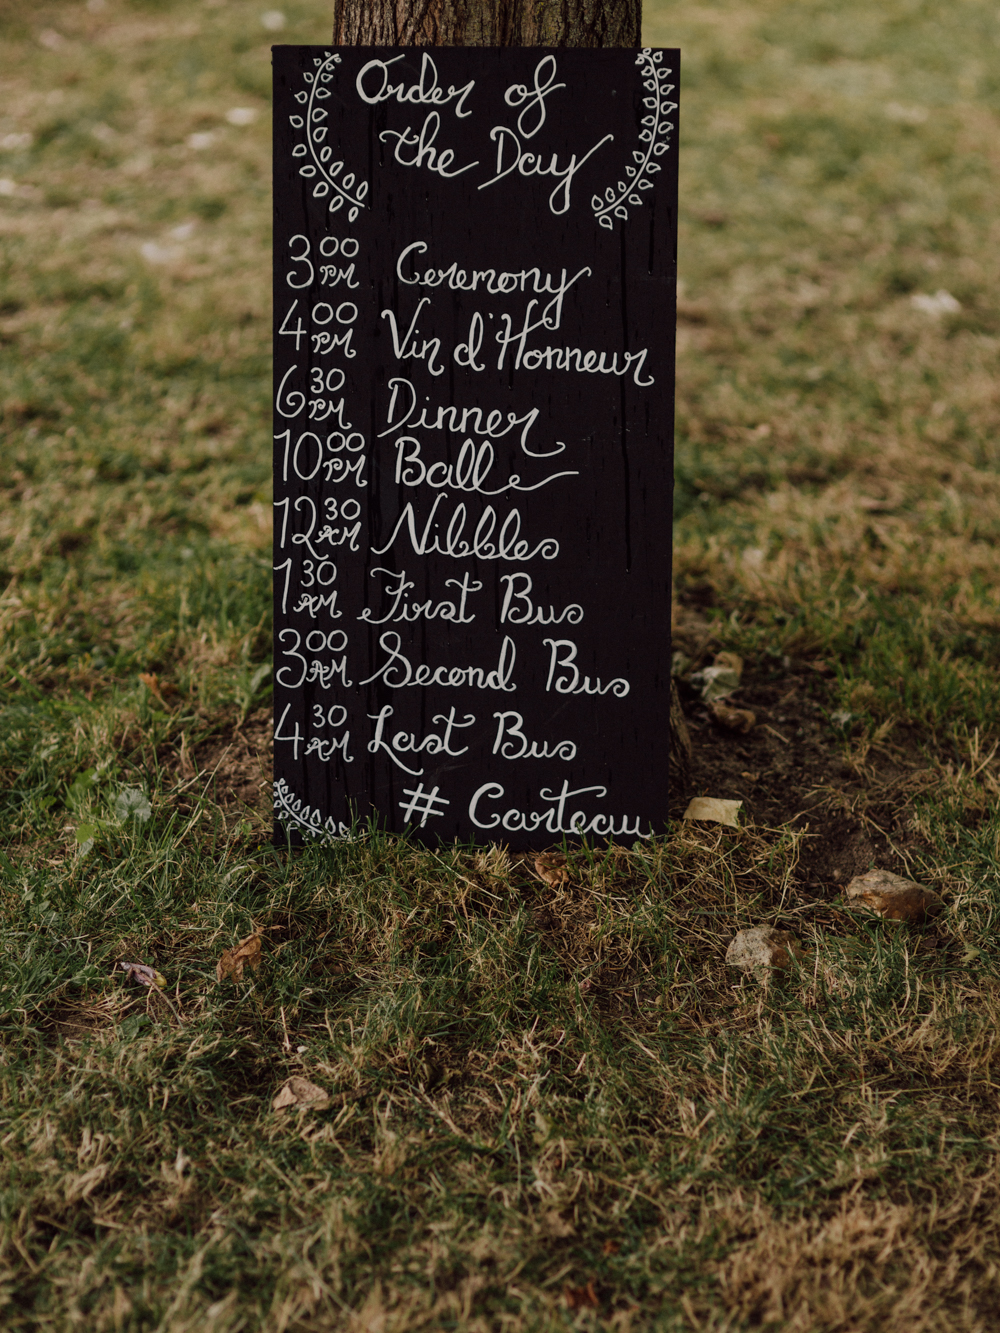 Order of
the Day
3 00 PM Ceremony
4 00 PM Vin d'Honneur
6 30 PM Dinner
10 00 PM Ball
12 30 AM Nibbles
1 30 AM First Bus
3 00 AM Second Bus
4 30 AM Last Bus
# Carteau